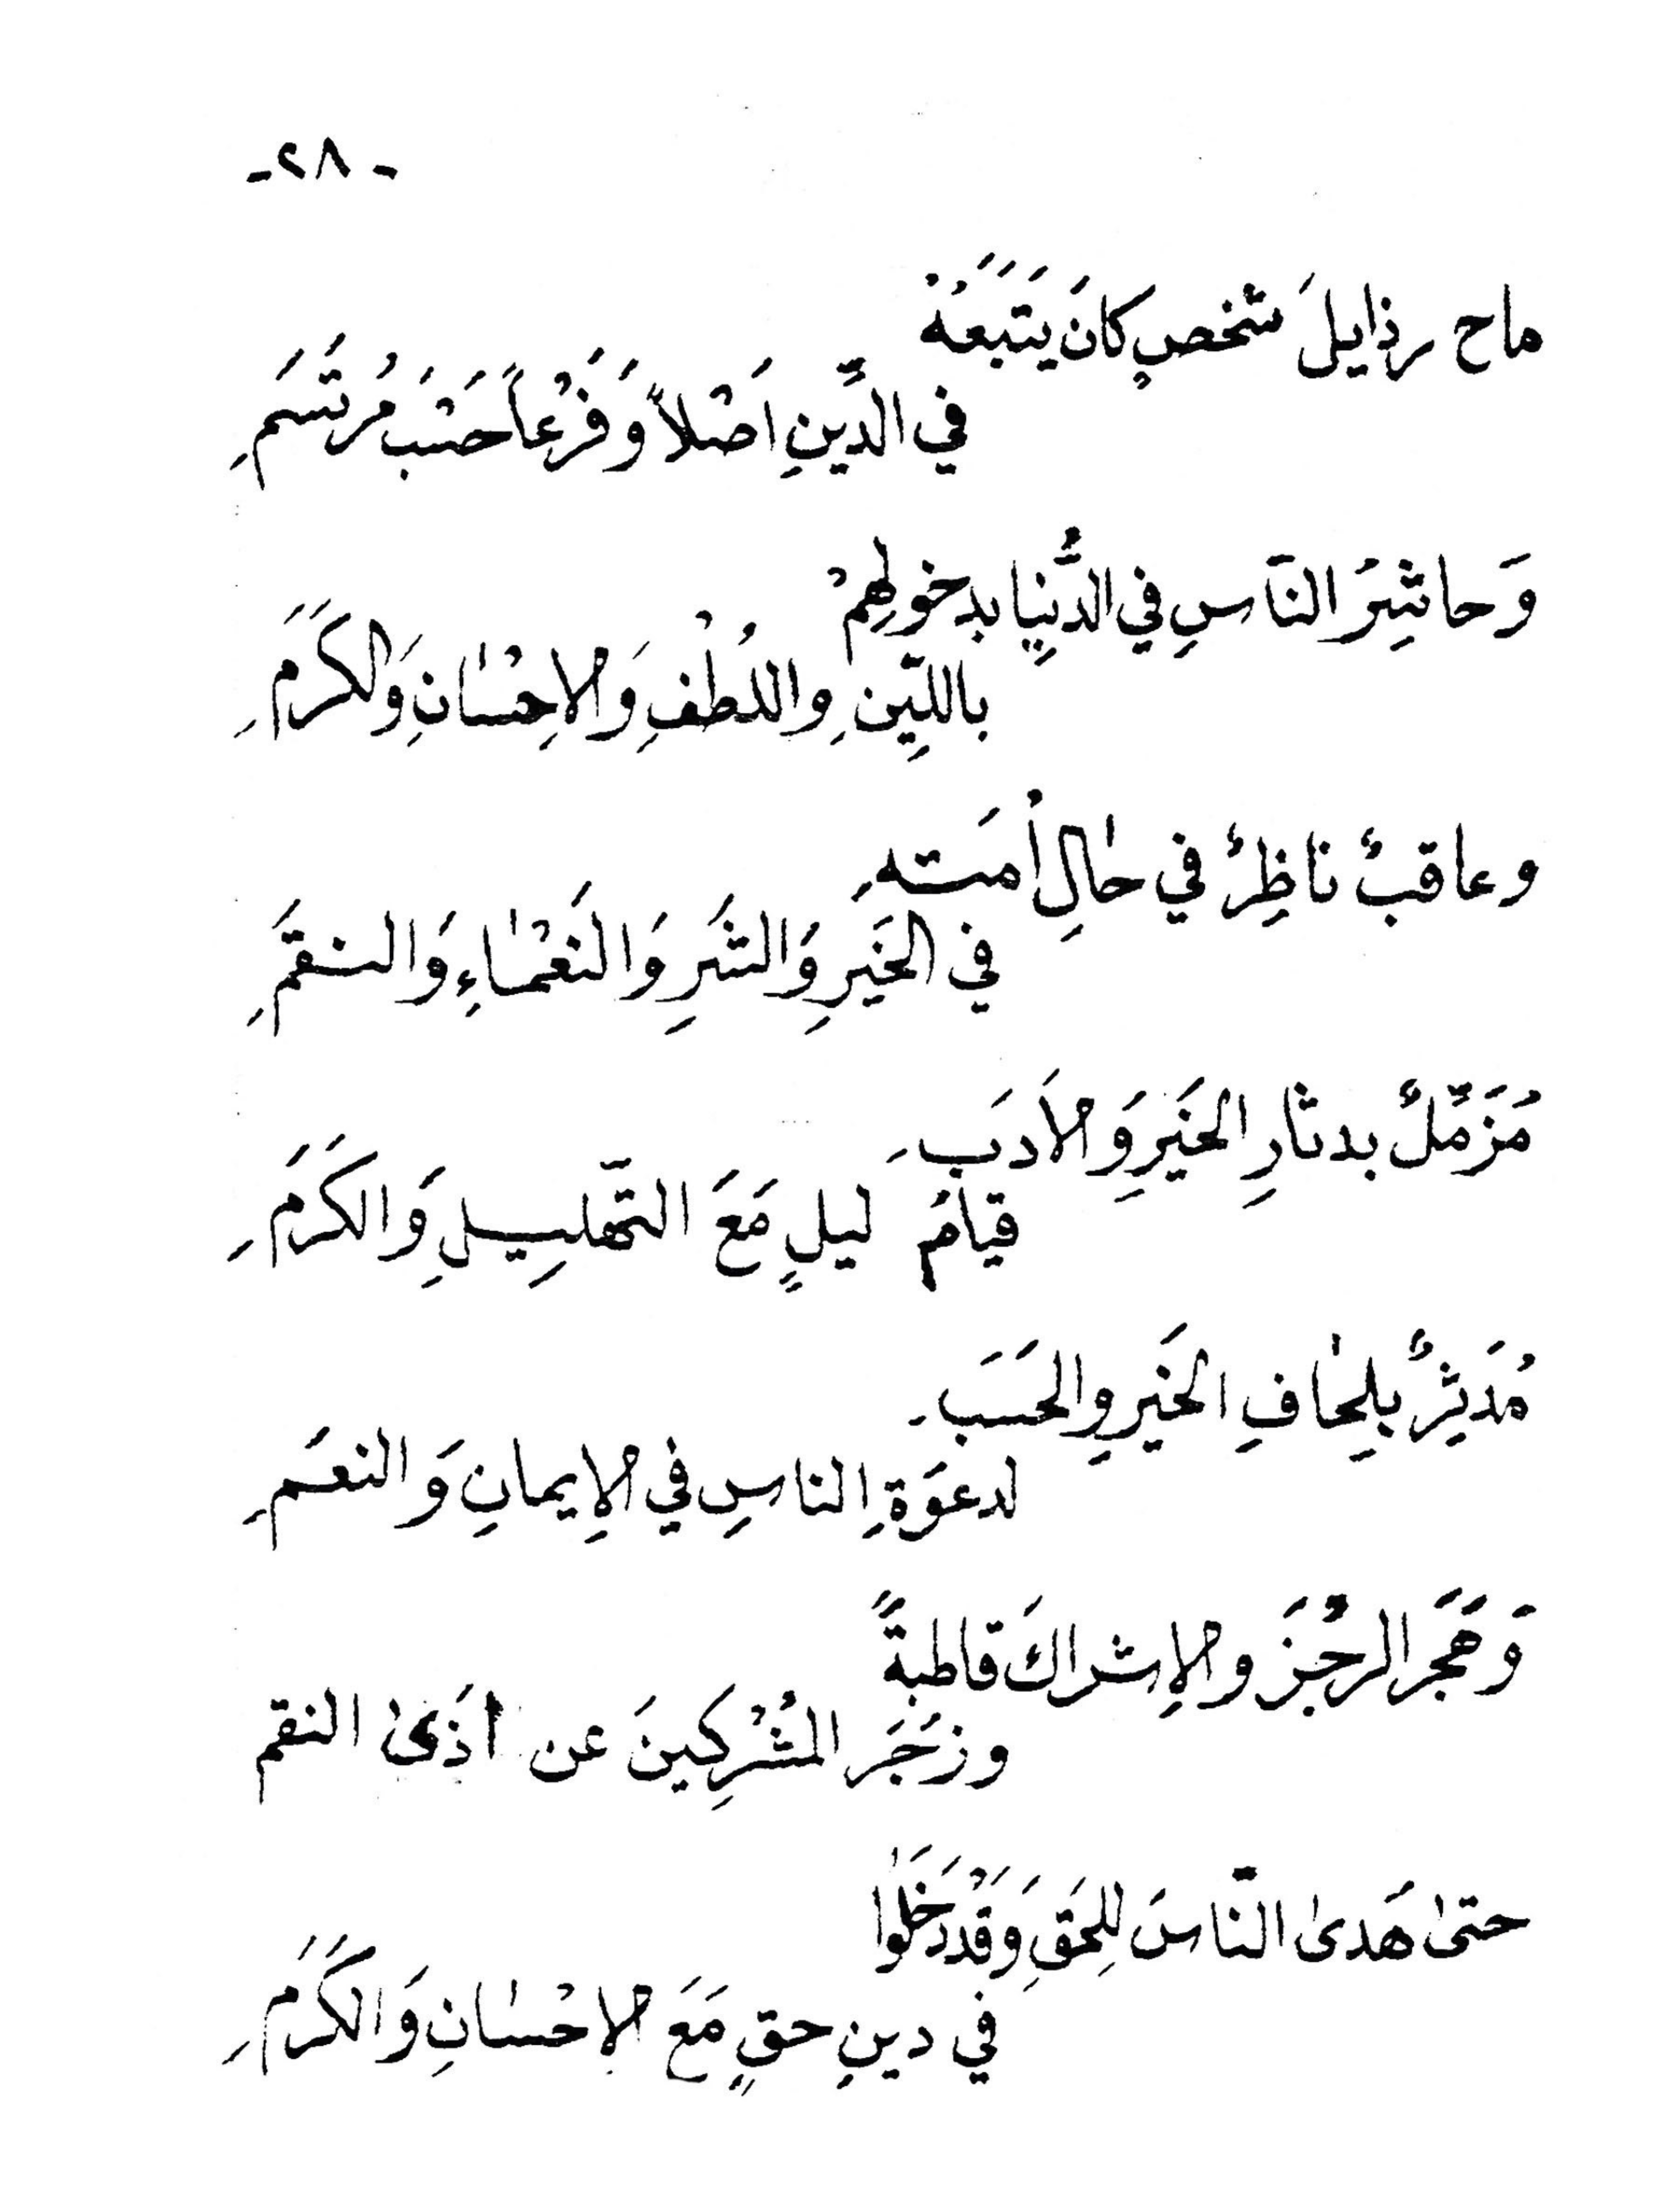 -٢٨-
ماح رذايلَ شخصٍ كانَ يَتَبَعَهُ
في الدِّينِ اَصْلاً وَفَرْعاً حَسْبَ مُرتَسَمِ
وَحاشِرُ النَاسِ في الدُّنيا بدخولِهِمْ
باللّيِنِ واللُطْفِ وَالاِحْسٰانِ وَالكَرَمِ
وعاقبٌ ناظِرٌ في حٰالِ أُمَتهِ
في الخَيرِ وَالشَرِ وَالنَعْمٰاءِ وَالنقَمِ
مُزَمِّلٌ بدثارِ الخَيرِ وَالأَدَبِ
قيامُ ليلٍ مَعَ التّهلِيلِ وَالكَرَمِ
مُدَثِرٌ بِلِحٰافِ الخَيرِ والحَسَبِ
لدعوَةِ الناسِ في الإِيمانِ وَالنعَمِ
وَهَجَر الرجْزَ والإشراكَ قاطبةً
وزَجَرَ المُشْرِكينَ عن اَذَىٰ النقم
حتىٰ هَدىٰ النّاسَ لِلحَقِ وَقَدْ دَخَلَوا
في دينِ حقٍ مَعَ الاِحْسٰانِ وَالكَرَمِ